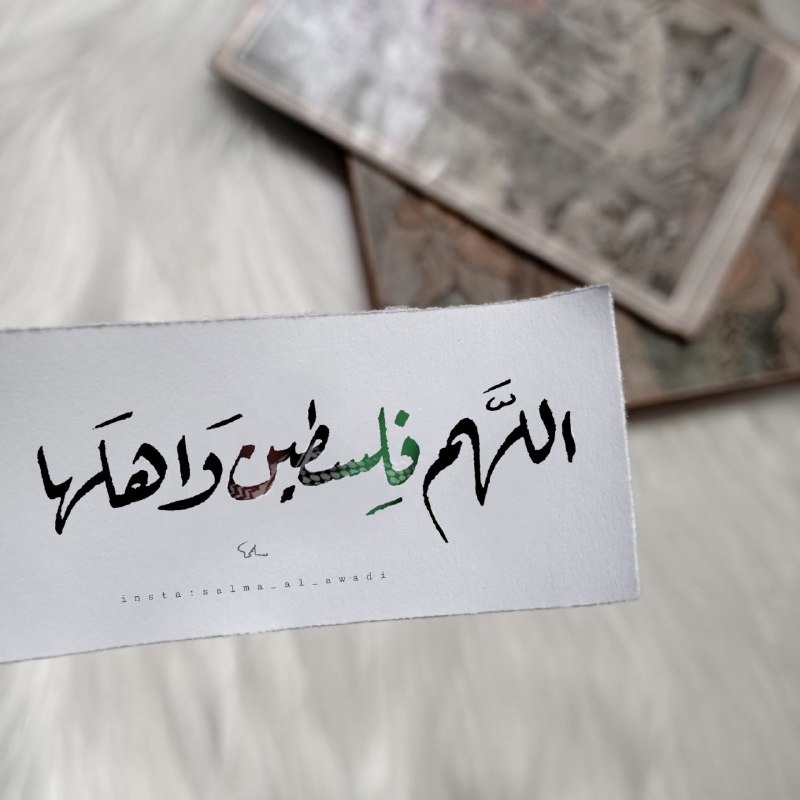 اللَّهم فلِسطين وَاهلَها
سلمى
insta:salma_al_awadi